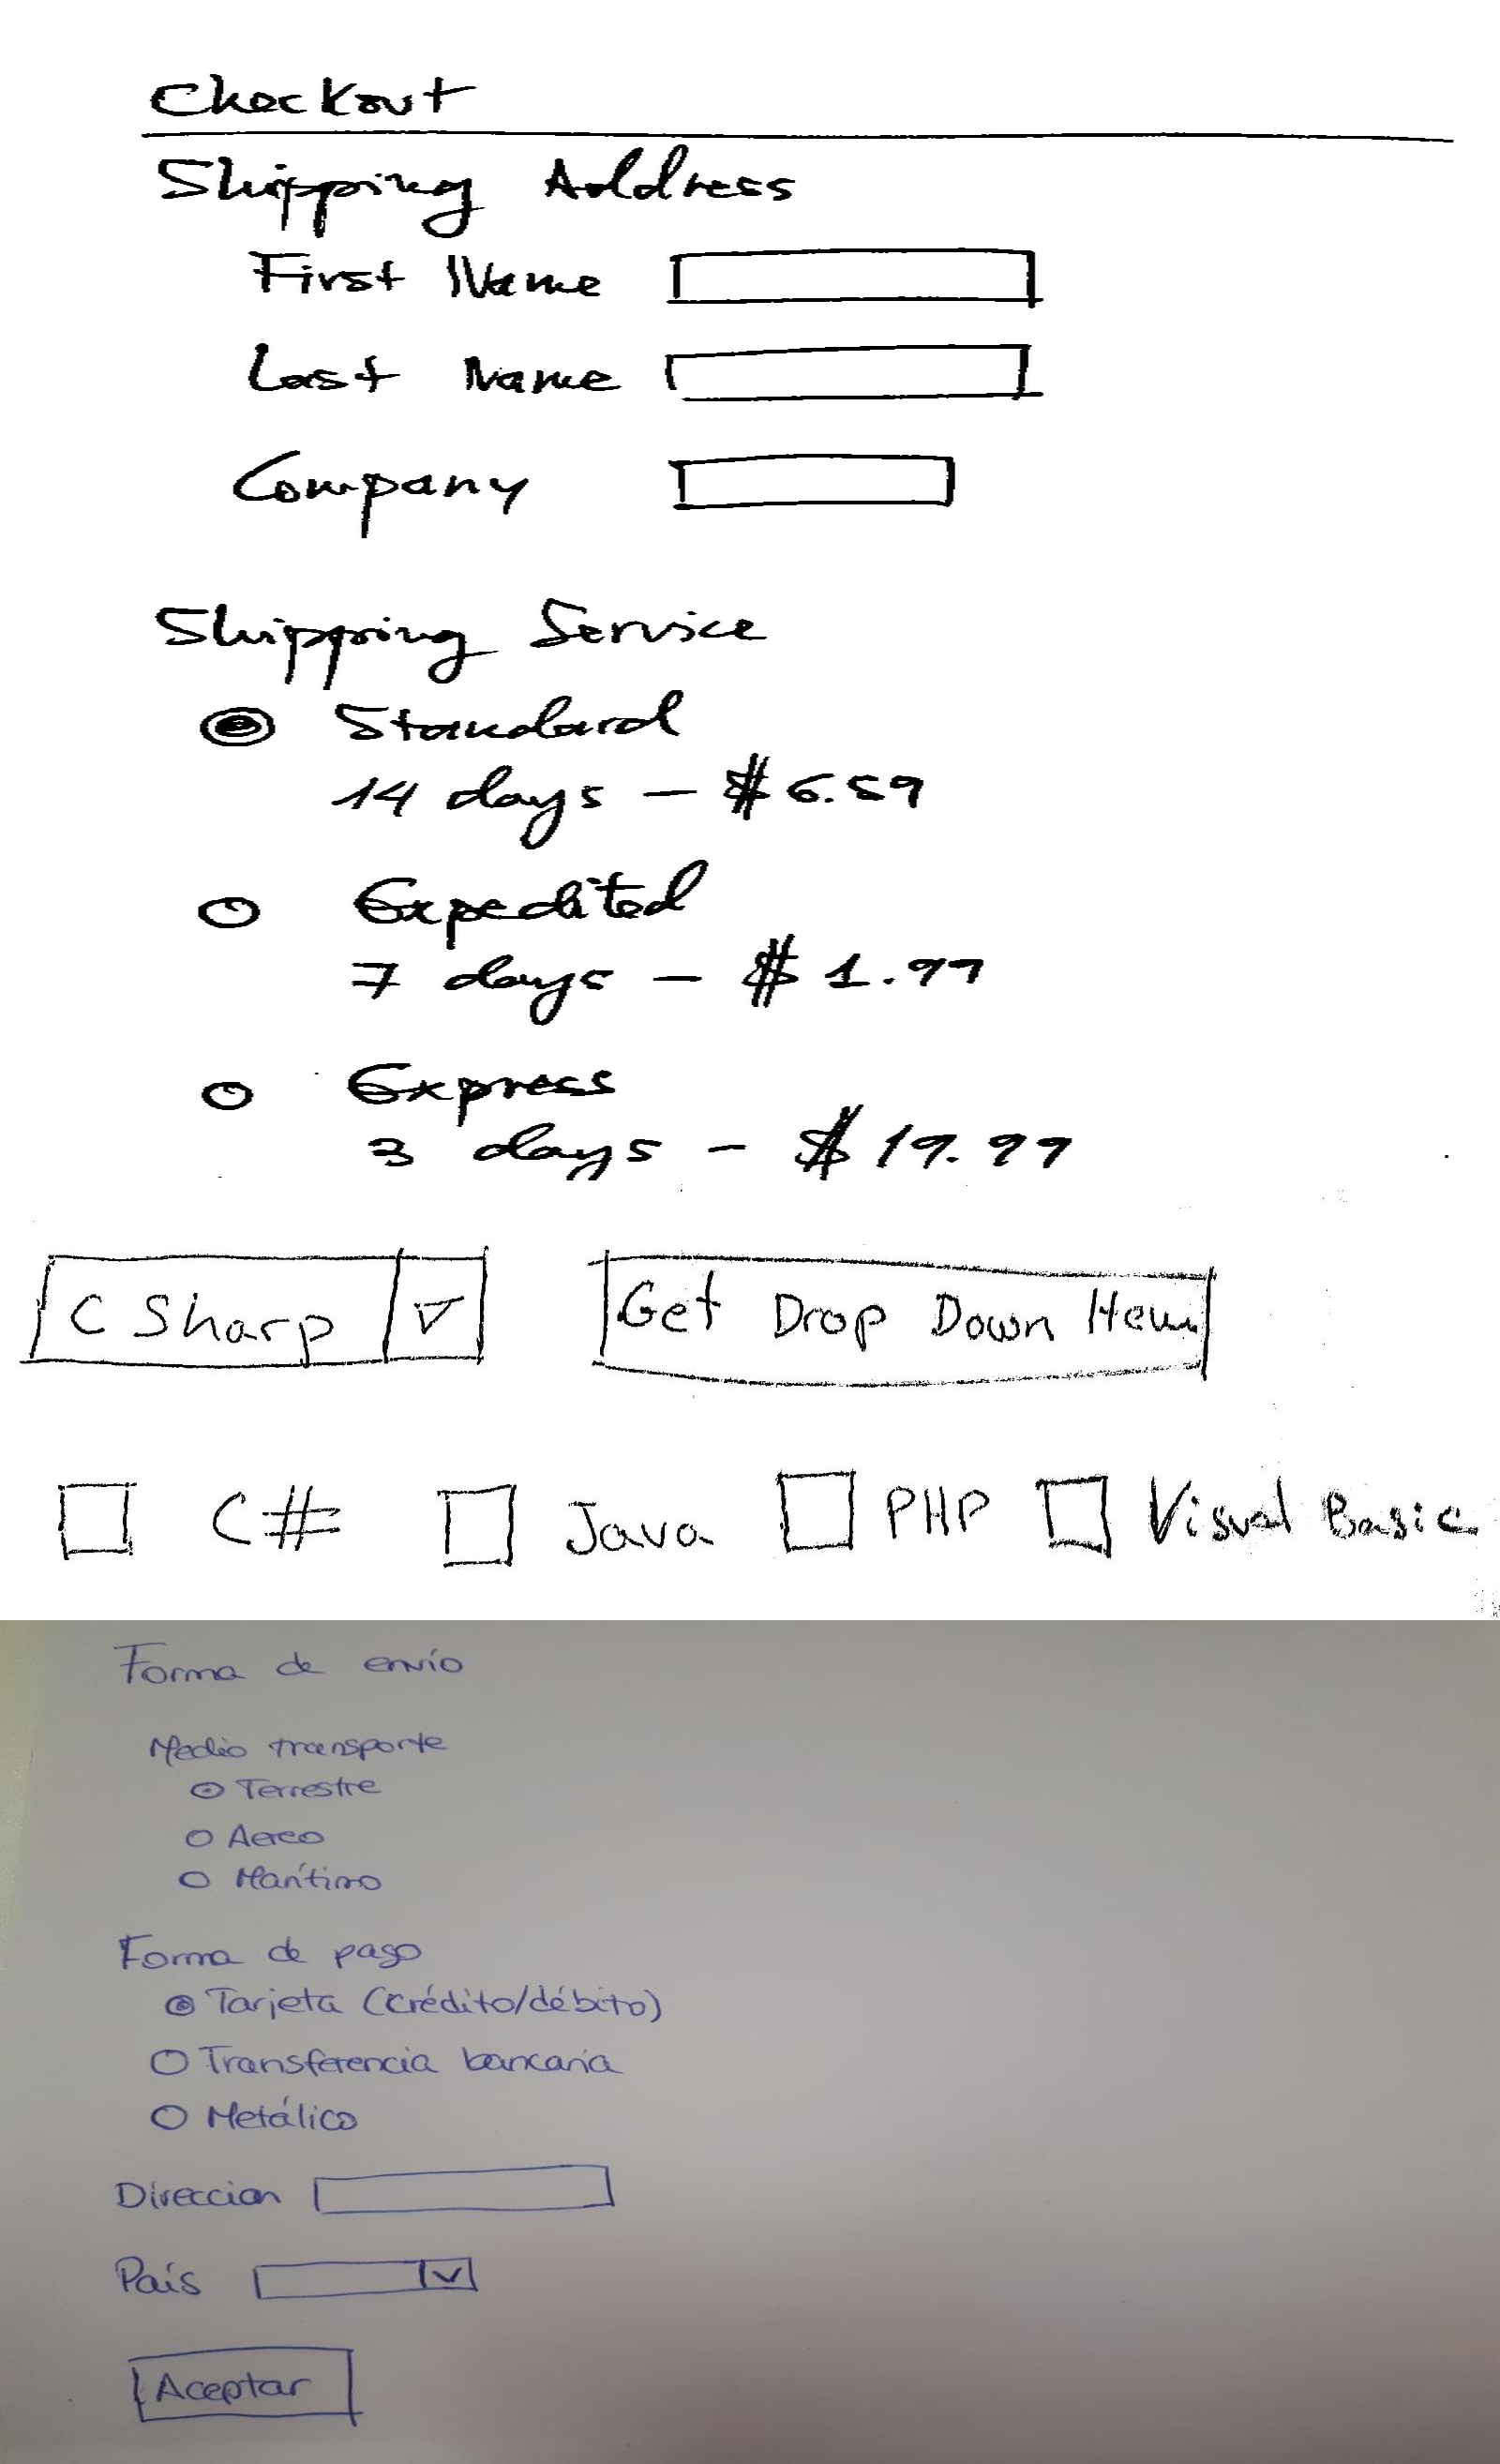 Checkout
Shipping Address
First Name
Last Name
Company
Shipping Service
Standard
14 days - $6.59
Expedited
7 days - $1.99
Express
3 days - $19.99
C Sharp
Get Drop Down Item
C# Java PHP Visual Basic
Forma de envío
Medio transporte
Terrestre
Aereo
Marítimo
Forma de pago
Tarjeta (crédito/débito)
Transferencia bancaria
Metálico
Direccion
País
Aceptar